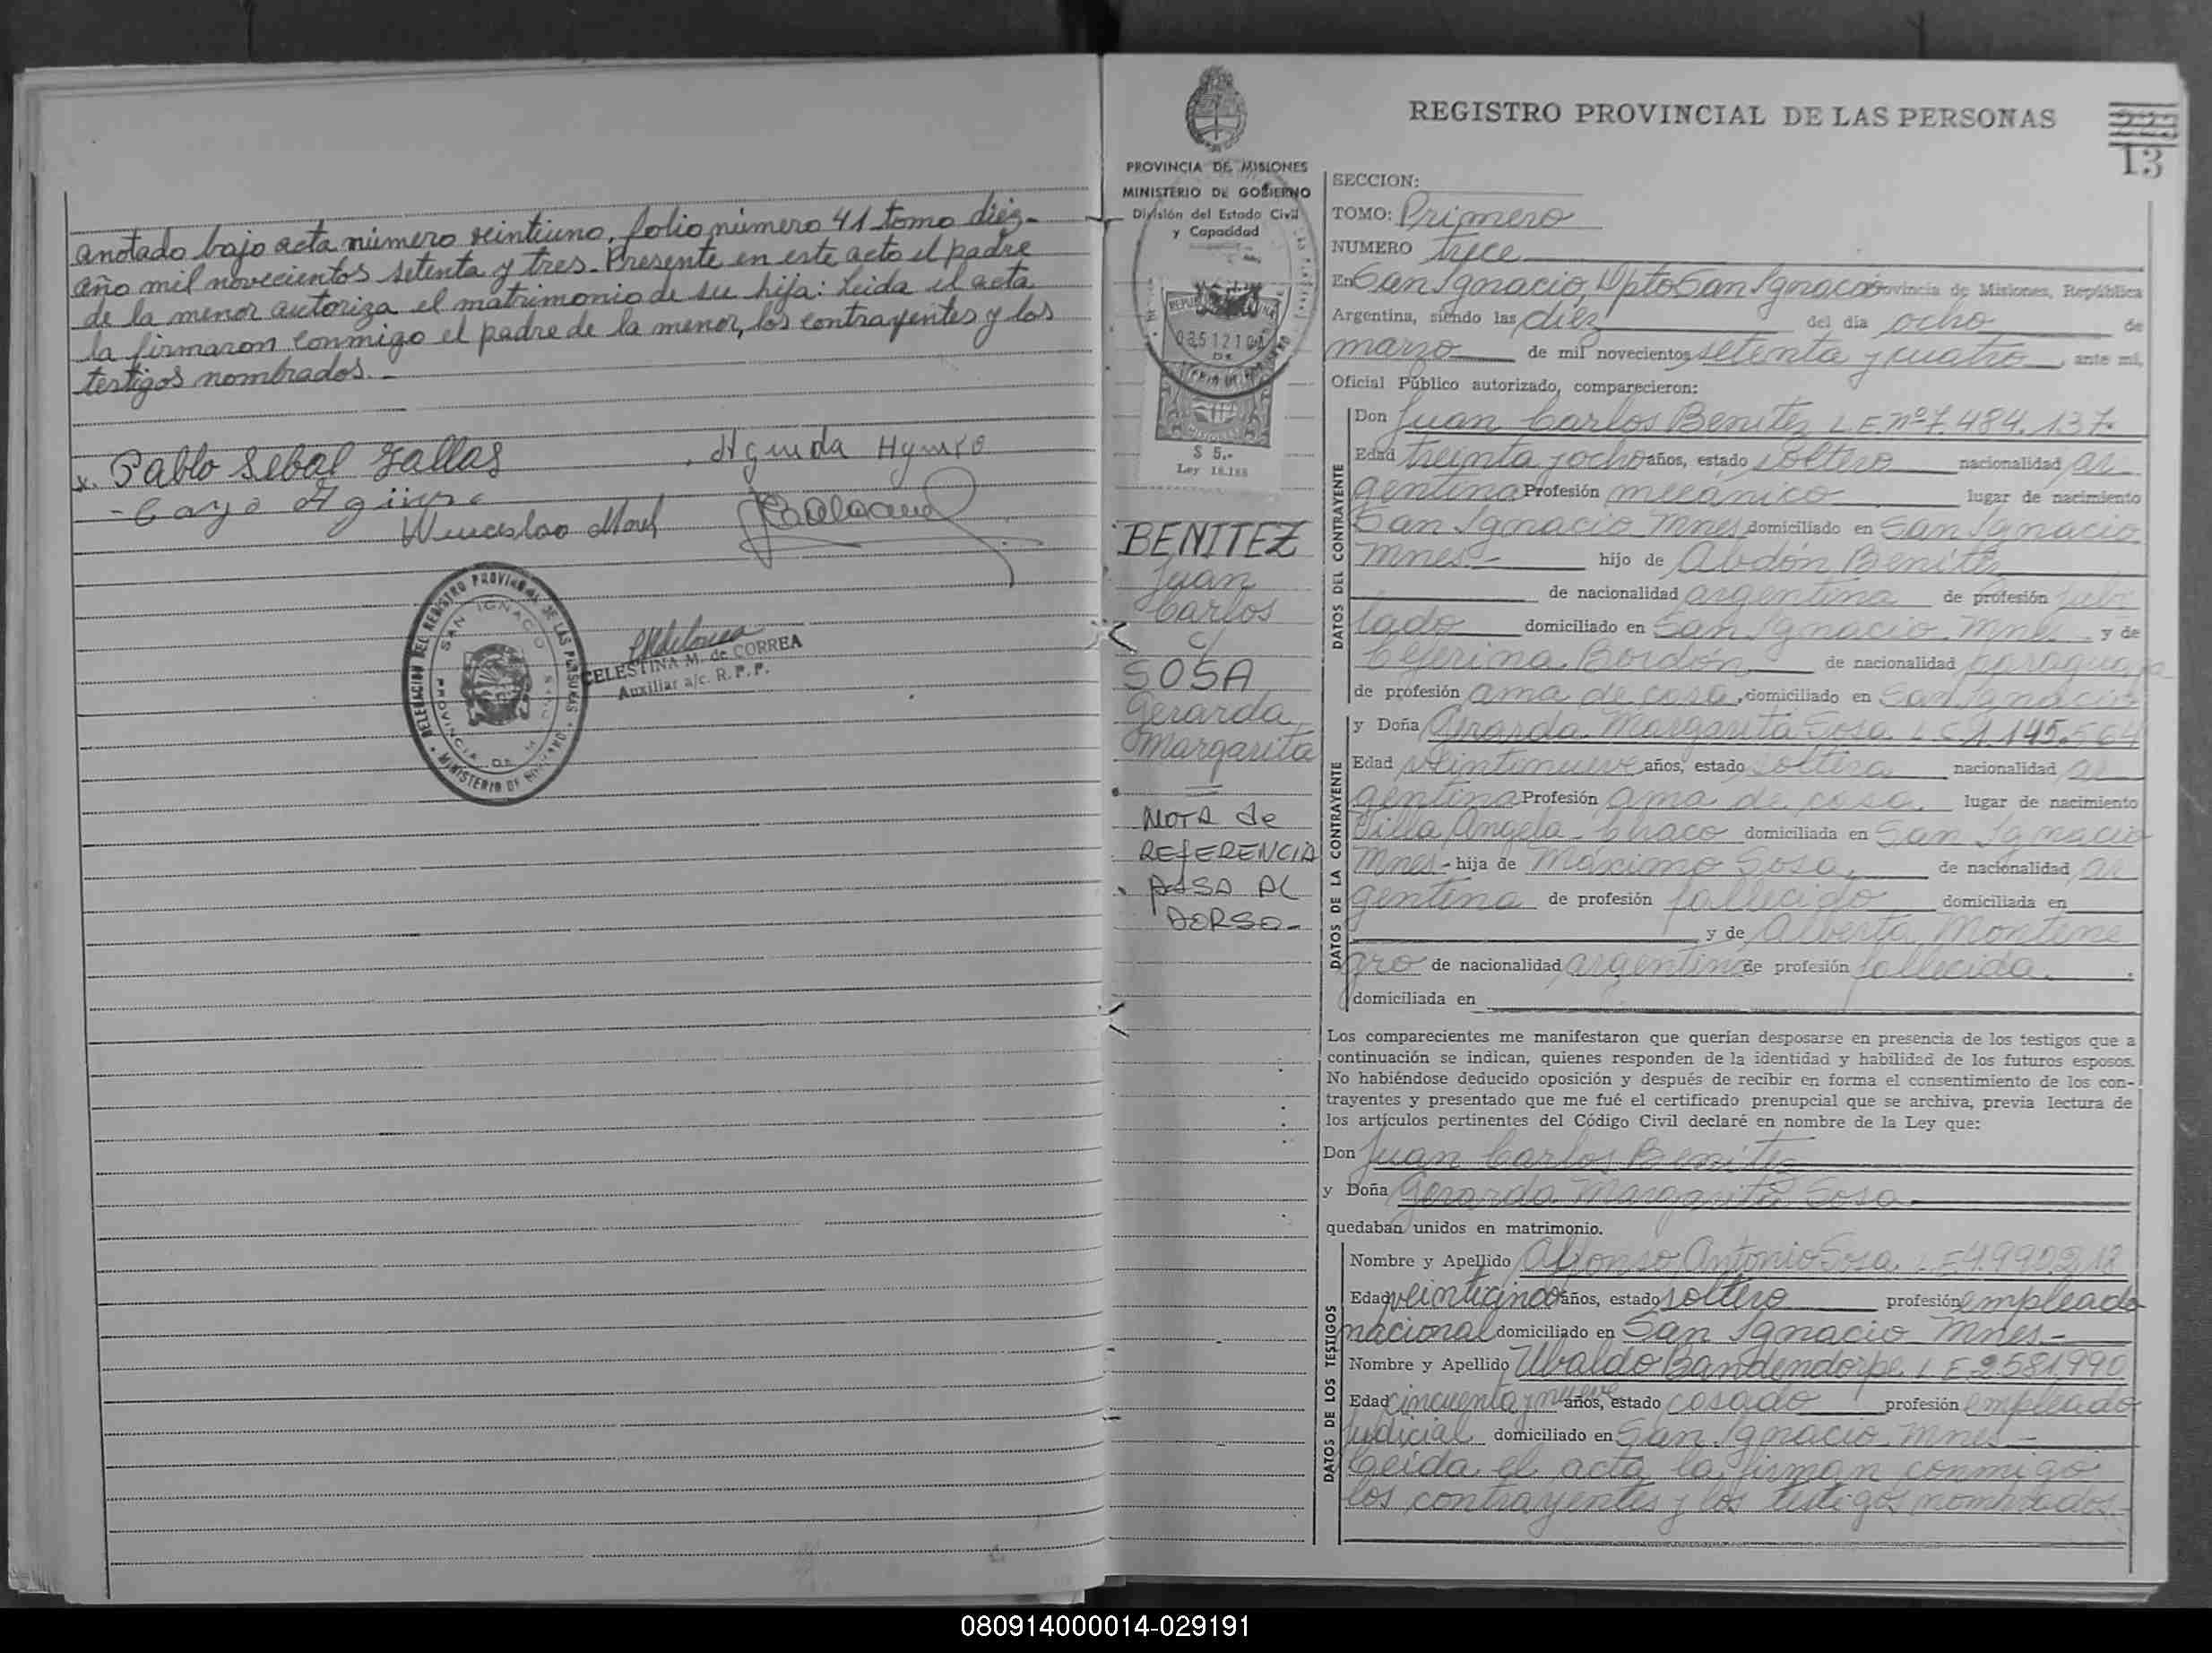 anotado bajo acta número veintiuno, folio número 41 tomo diez-
año mil novecientos setenta y tres. Presente en este acto el padre
de la menor autoriza el matrimonio de su hija: Leida el acta
la firmaron conmigo el padre de la menor, los contrayentes y los
testigos nombrados.-
x. Pablo Sebal Fallas
Wenceslao
SAN IGNACIO
CELESTINA M. de CORREA
Auxiliar a/c. R. P. P.
PROVINCIA DE MISIONES
MINISTERIO DE GOBIERNO
División del Estado Civil
y Capacidad
$ 5.-
Ley 18.188
BENITEZ
Juan
Carlos
c/
SOSA
Gerarda
Margarita
NOTA de
REFERENCIA
PASA AL
DORSO-
REGISTRO PROVINCIAL DE LAS PERSONAS
223
13
SECCION:
TOMO: Primero
NUMERO trece
En San Ignacio, Dpto San Ignacio Provincia de Misiones, República
Argentina, siendo las diez del día ocho de
marzo de mil novecientos setenta y cuatro, ante mi,
Oficial Público autorizado, comparecieron:
DATOS DEL CONTRAYENTE
Don Juan Carlos Benitez L.E. nº 7.484.137.
Edad treinta y ocho años, estado soltero nacionalidad ar
gentina Profesión mecánico lugar de nacimiento
San Ignacio Mnes domiciliado en San Ignacio
Mnes- hijo de Abdón Benitez
de nacionalidad argentina de profesión jubi
lado domiciliado en San Ignacio. Mnes y de
Ceferina Bordón de nacionalidad paraguaya
de profesión ama de casa, domiciliado en San Ignacio
DATOS DE LA CONTRAYENTE
y Doña Gerarda Margarita Sosa L C 1.145.564
Edad veintinueve años, estado soltera nacionalidad ar
gentina Profesión ama de casa. lugar de nacimiento
Villa Angela - Chaco domiciliada en San Ignacio
Mnes- hija de Máximo Sosa, de nacionalidad ar
gentina de profesión fallecido domiciliada en
y de Alberta Montene
gro de nacionalidad argentina de profesión fallecida.
domiciliada en
Los comparecientes me manifestaron que querían desposarse en presencia de los testigos que a
continuación se indican, quienes responden de la identidad y habilidad de los futuros esposos.
No habiéndose deducido oposición y después de recibir en forma el consentimiento de los con-
trayentes y presentado que me fué el certificado prenupcial que se archiva, previa lectura de
los artículos pertinentes del Código Civil declaré en nombre de la Ley que:
Don Juan Carlos Benitez
y Doña Gerarda Margarita Sosa
quedaban unidos en matrimonio.
DATOS DE LOS TESTIGOS
Nombre y Apellido Alfonso Antonio Sosa L E 4.992.212
Edad veinticinco años, estado soltero profesión empleado
nacional domiciliado en San Ignacio Mnes-
Nombre y Apellido Ubaldo Bandendorpe L E 2.581.990
Edad cincuenta y nueve años, estado casado profesión empleado
judicial domiciliado en San Ignacio. Mnes-
Leida el acta la firman conmigo
los contrayentes y los testigos nombrados.
080914000014-029191